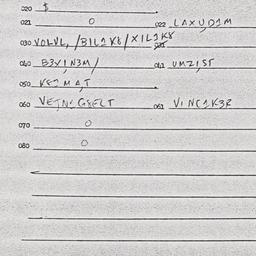 020 $
021 0 022 LAXUD1M
030 VOLVL, /BIL1K8/XIL1K8
040 B3VIN3M/ 041 UMZIST
050 VEIMAT
060 VEJN1 GEELT 061 VINC1K3R
070 0
080 0